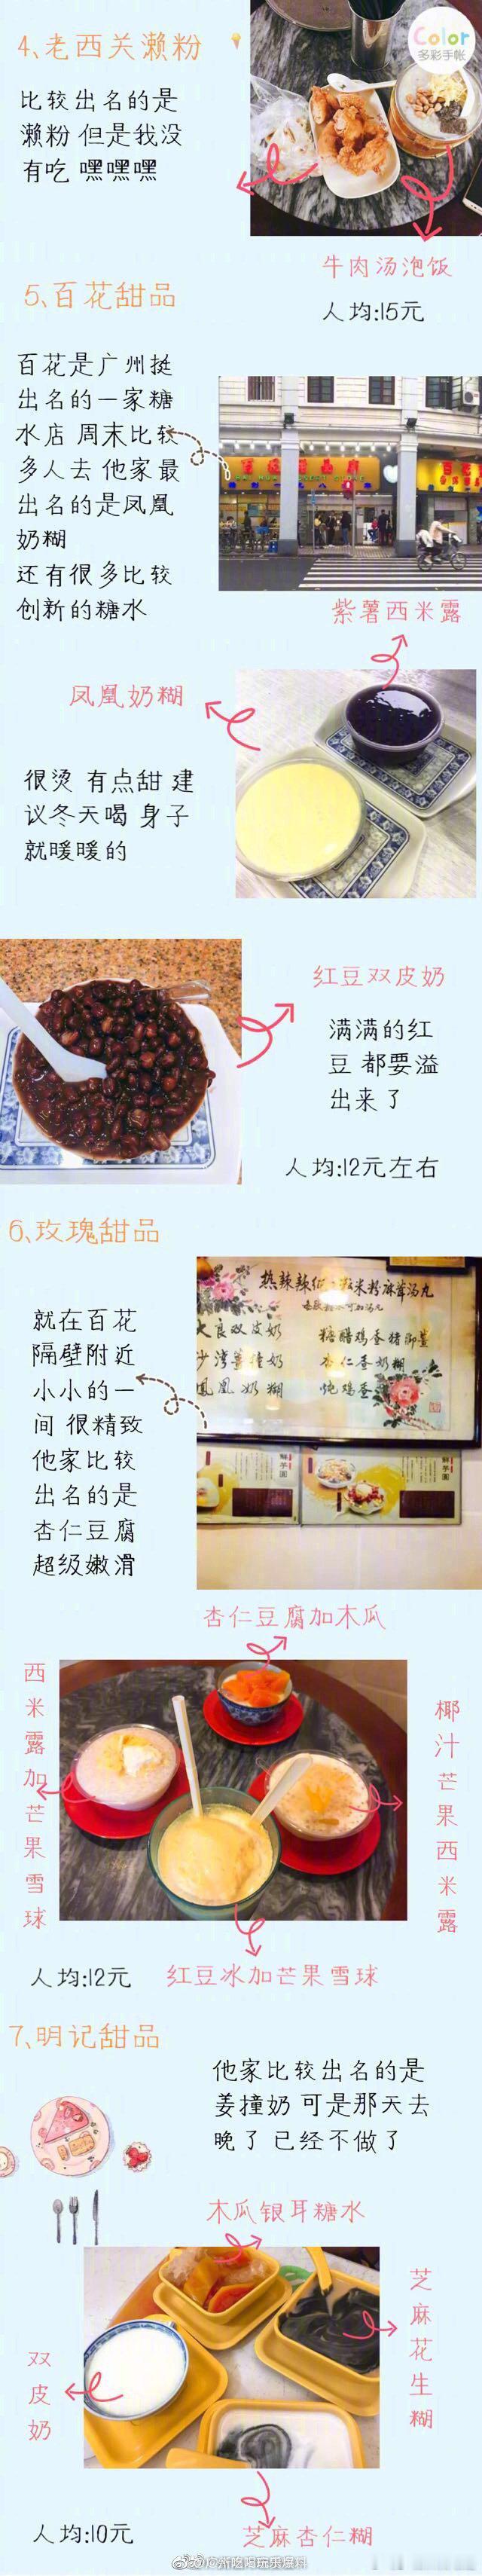 4、老西关濑粉
Color
多彩手帐
比较出名的是
濑粉 但是我没
有吃 嘿嘿嘿
牛肉汤泡饭
人均:15元
5、百花甜品
百花是广州挺
出名的一家糖
水店 周末比较
多人去 他家最
出名的是凤凰
奶糊
还有很多比较
创新的糖水
紫薯西米露
凤凰奶糊
很烫 有点甜 建
议冬天喝 身子
就暖暖的
红豆双皮奶
满满的红
豆 都要溢
出来了
人均:12元左右
6、玫瑰甜品
就在百花
隔壁附近
小小的一
间 很精致
他家比较
出名的是
杏仁豆腐
超级嫩滑
大良双皮奶
凤凰奶糊
杏仁香奶糊
炖鸡蛋
杏仁豆腐加木瓜
西米露加芒果雪球
椰汁芒果西米露
人均:12元
红豆冰加芒果雪球
7、明记甜品
他家比较出名的是
姜撞奶 可是那天去
晚了 已经不做了
木瓜银耳糖水
芝麻花生糊
双皮奶
人均:10元
芝麻杏仁糊